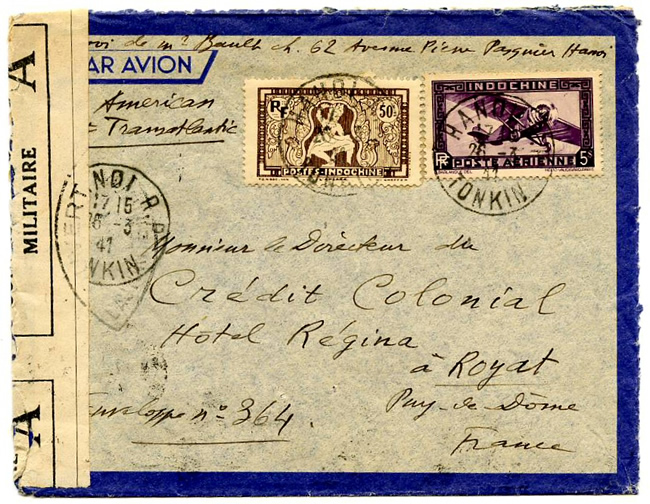 de Mr Bault ch. 62 Avenue Pierre Pasquier Hanoi
PAR AVION
American
Transatlantic
RF
50c
POSTES-INDOCHINE
INDOCHINE
RF
POSTE AÉRIENNE
5
HANOI
TONKIN
HANOI
25-3
41
TONKIN
A
MILITAIRE
A
HANOI R.P.
17 15
26-3
41
TONKIN
Monsieur le Directeur du
Crédit Colonial
Hôtel Régina
à Royat
Puy-de-Dôme
France
Enveloppe no 364.